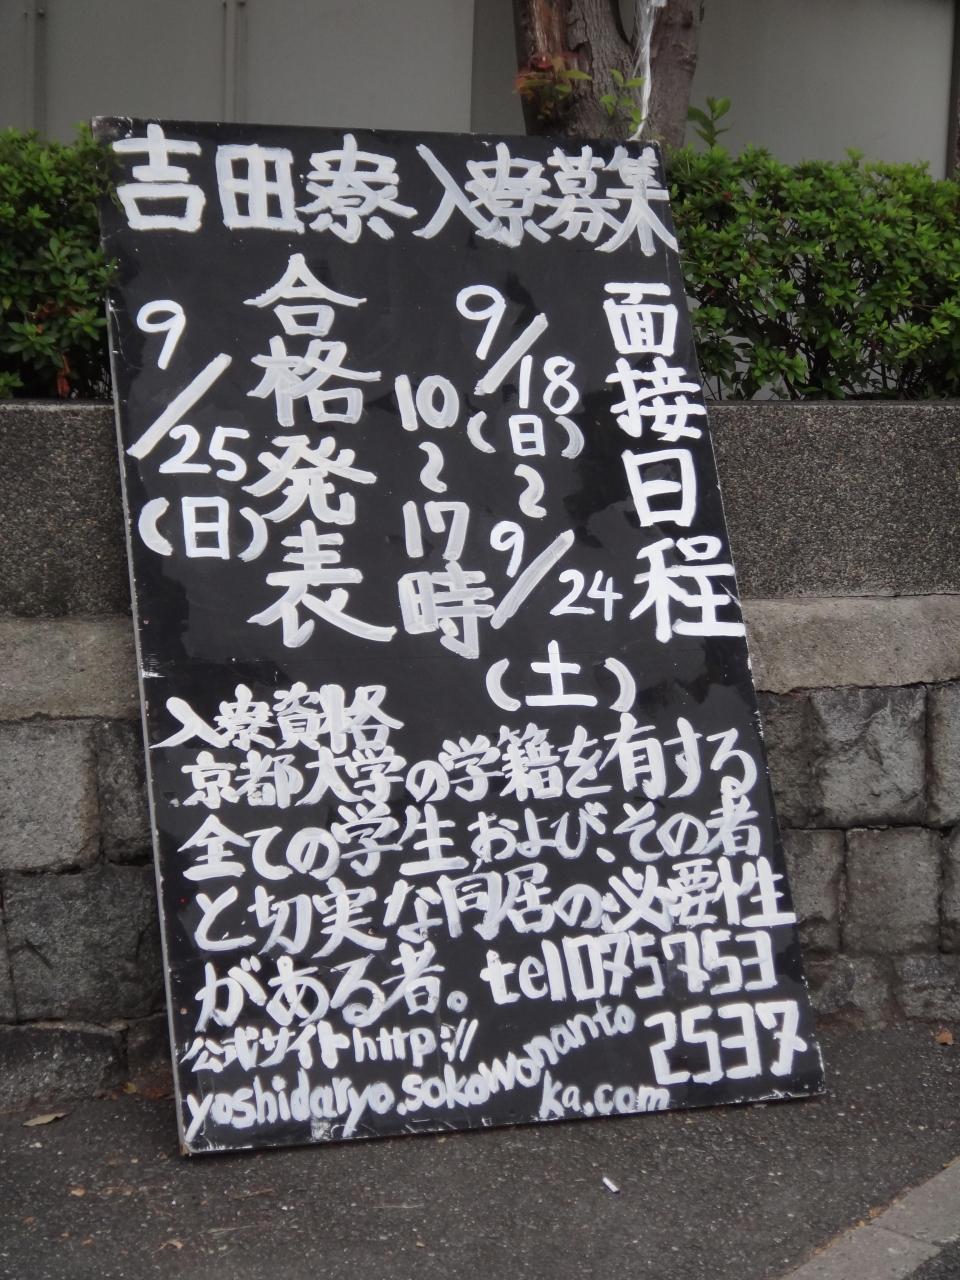 吉田寮入寮募集
面接日程
9/18(日)〜9/24(土)
10〜17時
合格発表
9/25(日)
入寮資格
京都大学の学籍を有する
全ての学生および、その者
と切実な同居の必要性
がある者。tel 075 753
2537
公式サイトhttp://
yoshidaryo.sokowonanto
ka.com